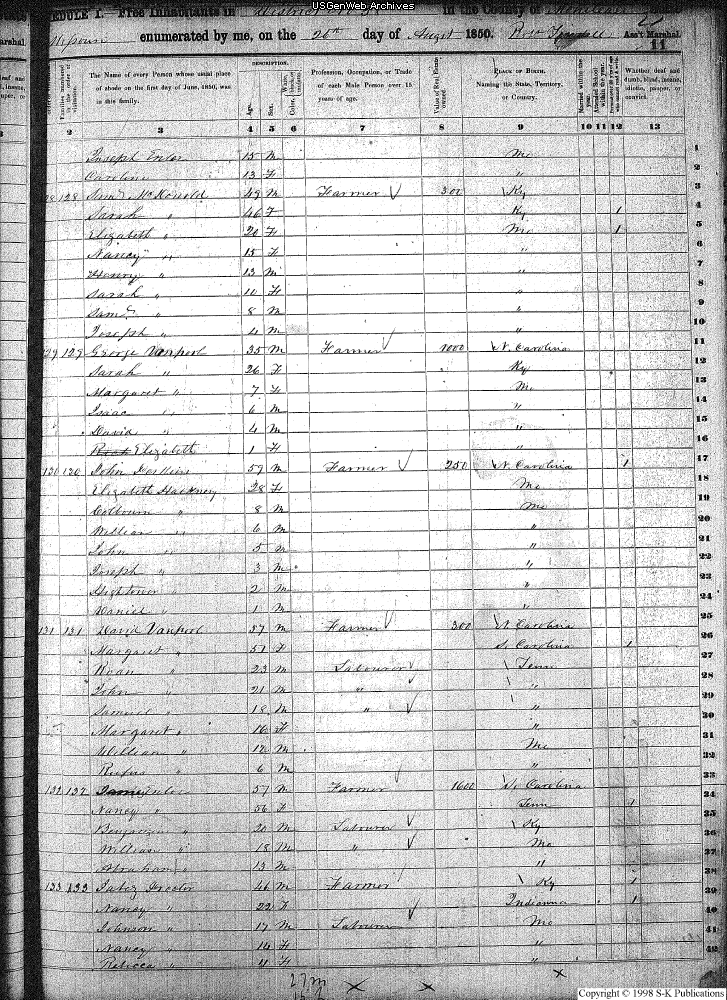 USGenWeb-Archives
SCHEDULE I.—Free Inhabitants in District No in the County of
Missouri enumerated by me, on the 26th day of August 1850. Ass't Marshal.
11
The Name of every Person whose usual place of abode on the first day of June, 1850, was in this family.
DESCRIPTION.
Age.
Sex.
Profession, Occupation, or Trade of each Male Person over 15 years of age.
Value of Real Estate owned.
PLACE OF BIRTH. Naming the State, Territory, or Country.
Married within the year.
Attended School within the year.
Whether deaf and dumb, blind, insane, idiotic, pauper, or convict.
2 3 4 5 6 7 8 9 10 11 12 13
Joseph Enloe 15 M Mo 1
Caroline 13 F " 2
128 Saml McKonold 49 M Farmer 300 Ky 3
Sarah " 46 F Ky 1 4
Elizabeth " 20 F Mo 1 5
Nancy " 15 F " 6
Henry " 13 M " 7
Sarah " 10 F " 8
Saml " 8 M " 9
Joseph " 4 M " 10
129 129 George Vanpool 35 M Farmer 1000 N. Carolina 11
Sarah " 26 F Ky 12
Margaret " 7 F Mo 13
Isaac " 6 M " 14
David " 4 M " 15
Elizabeth 1 F " 16
130 130 John Deskins 59 M Farmer 250 N. Carolina 1 17
Elizabeth Hackney 28 F Mo 18
Colbourn " 8 M Mo 19
William " 6 M " 20
John " 5 M " 21
Joseph " 3 M " 22
Hightower " 2 M " 23
Daniel " 1 M " 24
131 131 David Vanpool 57 M Farmer 300 N Carolina 25
Margaret " 51 F So Carolina 1 26
23 M Labourer Tenn 27
John " 21 M " " 28
Samuel " 18 M " " 29
Margaret " 16 F " 30
William " 12 M Mo 31
Rufus " 6 M " 32
132 132 Enloe 57 M Farmer 1600 So Carolina 33
Nancy " 56 F Tenn 1 34
Benjamin " 20 M Labourer Ky 35
William " 18 M " Mo 36
Abraham " 13 M " 37
133 133 Jabez 46 M Farmer Ky 1 38
Nancy " 22 F Indianna 1 39
Johnson " 17 M Labourer Mo 40
Nancy " 14 F " 41
Rebecca " 11 F " 42
27 m
Copyright © 1998 S-K Publications